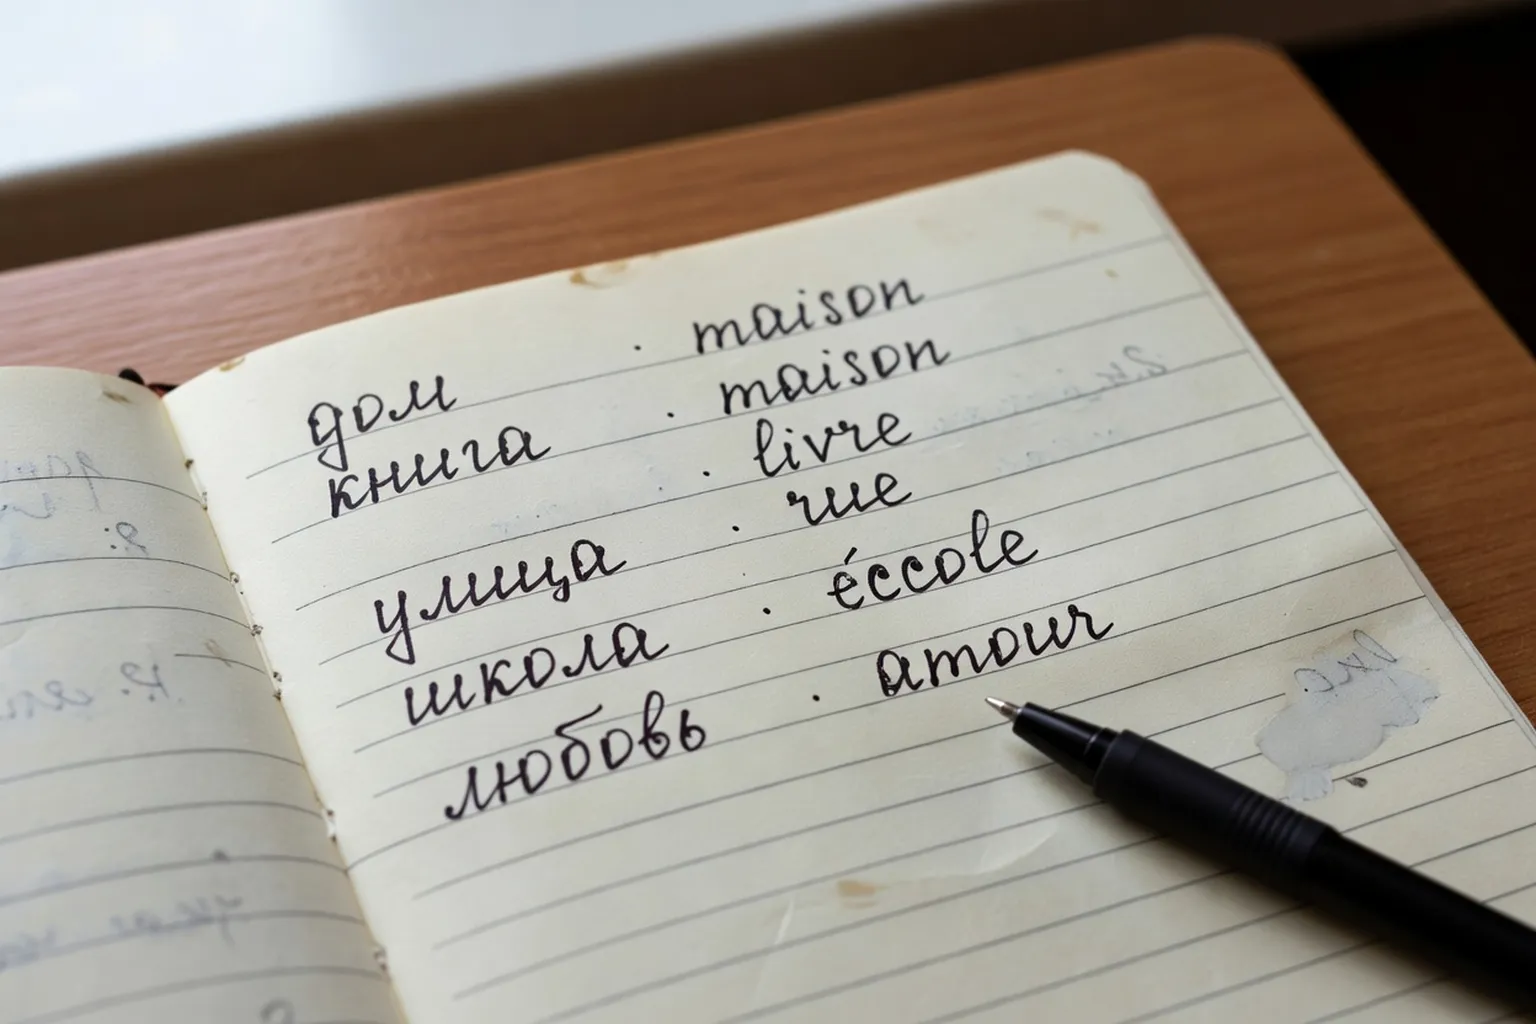 дом · maison
книга · maison
· livre
улица · rue
школа · éccole
любовь · amour